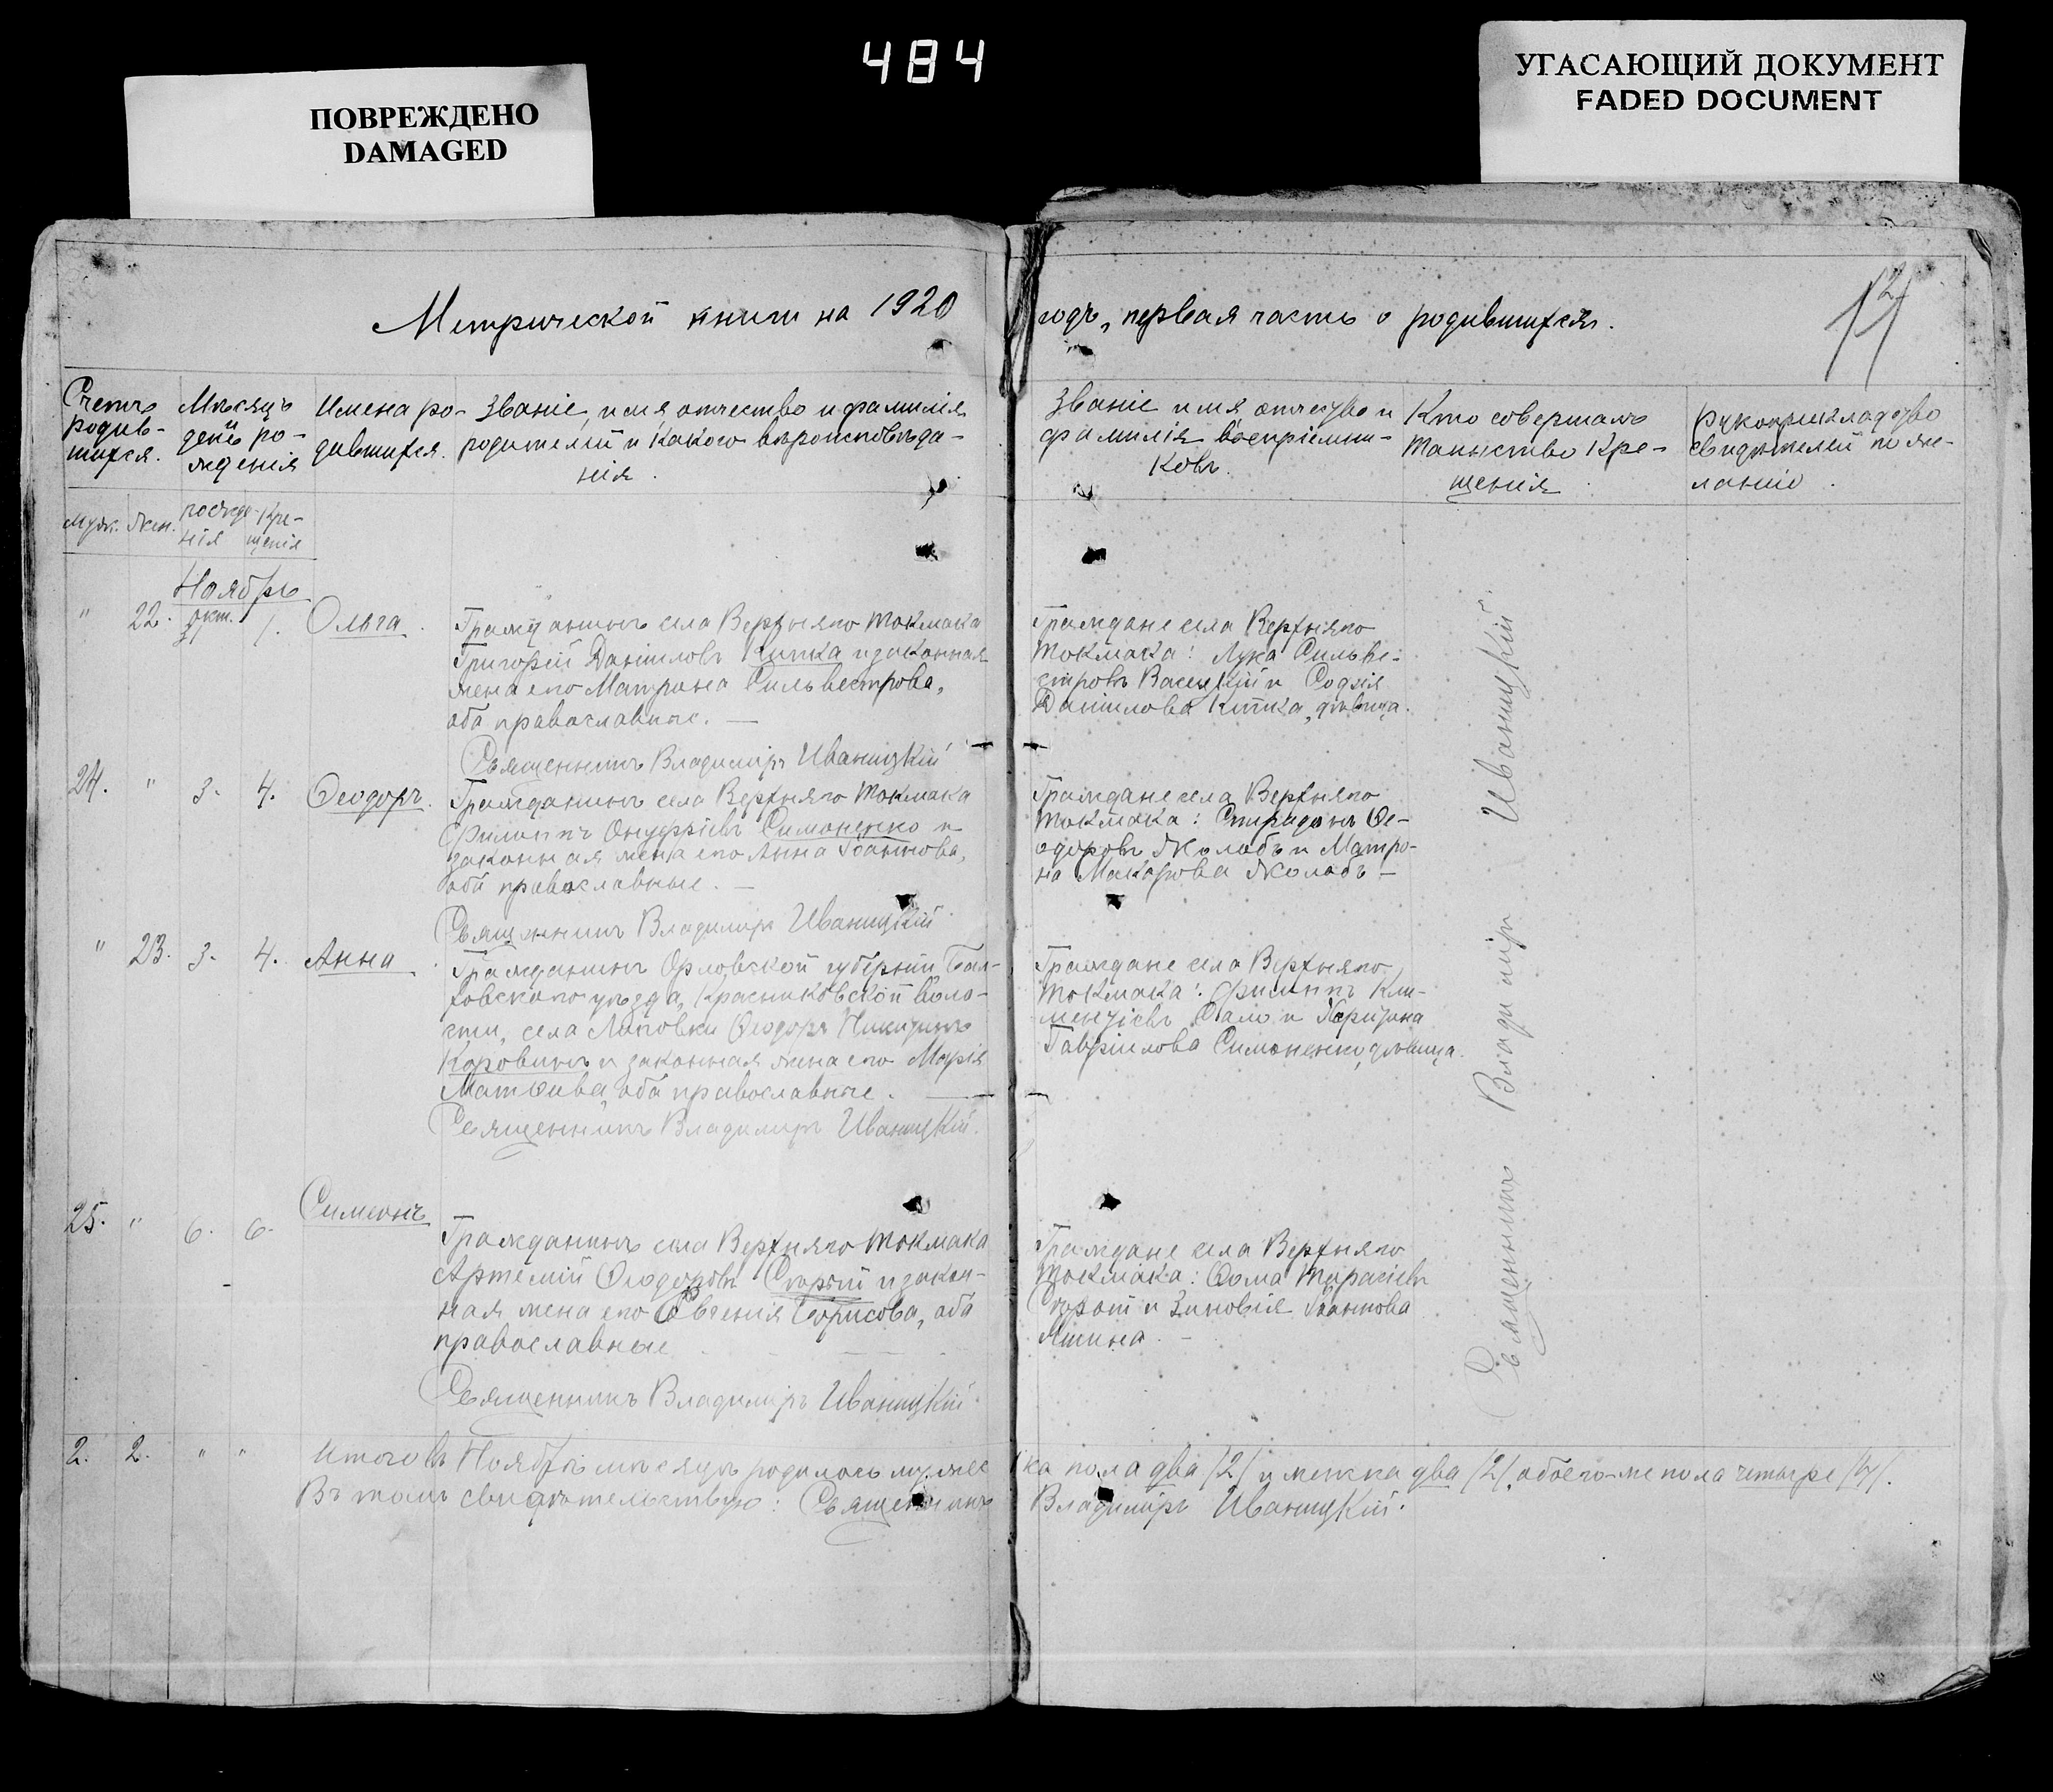 484
ПОВРЕЖДЕНО
DAMAGED
УГАСАЮЩИЙ ДОКУМЕНТ
FADED DOCUMENT
Метрической книги на 1920
годъ, первая часть о родившихся.
12
Счетъ
родив-
шихся.
Мѣсяцъ
день ро-
жденія
Имена ро-
дившихся.
Званіе, имя отчество и фамилія
родителей и какого вѣроисповѣда-
нія.
Званіе имя отчество и
фамилія воспріемни-
ковъ.
Кто совершалъ
таинство кре-
щенія
Рукоприкладство
свидѣтелей по же-
ланію.
Муж. Жен.
рожде-
нія
Кре-
щенія
Ноябрь
" 22. окт. 31 1. Ольга.
Гражданинъ села Верхняго Токмака
Григорій Даніиловъ Китка и законная
жена его Матрона Сильвестрова,
оба православные. —
Священникъ Владиміръ Иваницкій
Граждане села Верхняго
Токмака: Лука Сильве-
стровъ Василькій и Софія
Даніилова Китка, дѣвица.
24. " 3. 4. Ѳеодоръ.
Гражданинъ села Верхняго Токмака
Филиппъ Онуфріевъ Симоненко и
законная жена его Анна Іоаннова,
оба православные. —
Священникъ Владиміръ Иваницкій
Граждане села Верхняго
Токмака: Спиридонъ Ѳе-
одоровъ Жолобъ и Матро-
на Макарова Жолобъ —
" 23. 3. 4. Анна
Гражданинъ Орловской губерніи Бол-
ховскаго уѣзда, Красниковской воло-
сти, села Липовки Ѳеодоръ Никитинъ
Коровинъ и законная жена его Марія
Матѳеева, оба православные. —
Священникъ Владиміръ Иваницкій.
Граждане села Верхняго
Токмака: Филиппъ Кли-
ментіевъ и
Гавріилова Симоненко, дѣвица.
25. " 6. 6. Симеонъ
Гражданинъ села Верхняго Токмака
Артемій Ѳеодоровъ и закон-
ная жена его Евгенія Борисова, оба
православные
Священникъ Владиміръ Иваницкій.
Граждане села Верхняго
Токмака: Ѳома Тарасіевъ
и Зиновія Іоаннова
Яшина. —
Священникъ Владиміръ Иваницкій.
2. 2. " " Итого въ Ноябрѣ мѣсяцѣ родилось мужес
ка пола два /2/ и женска два /2/, обоего-же пола четыре /4/.
Въ томъ свидѣтельствую: Священникъ
Владиміръ Иваницкій.